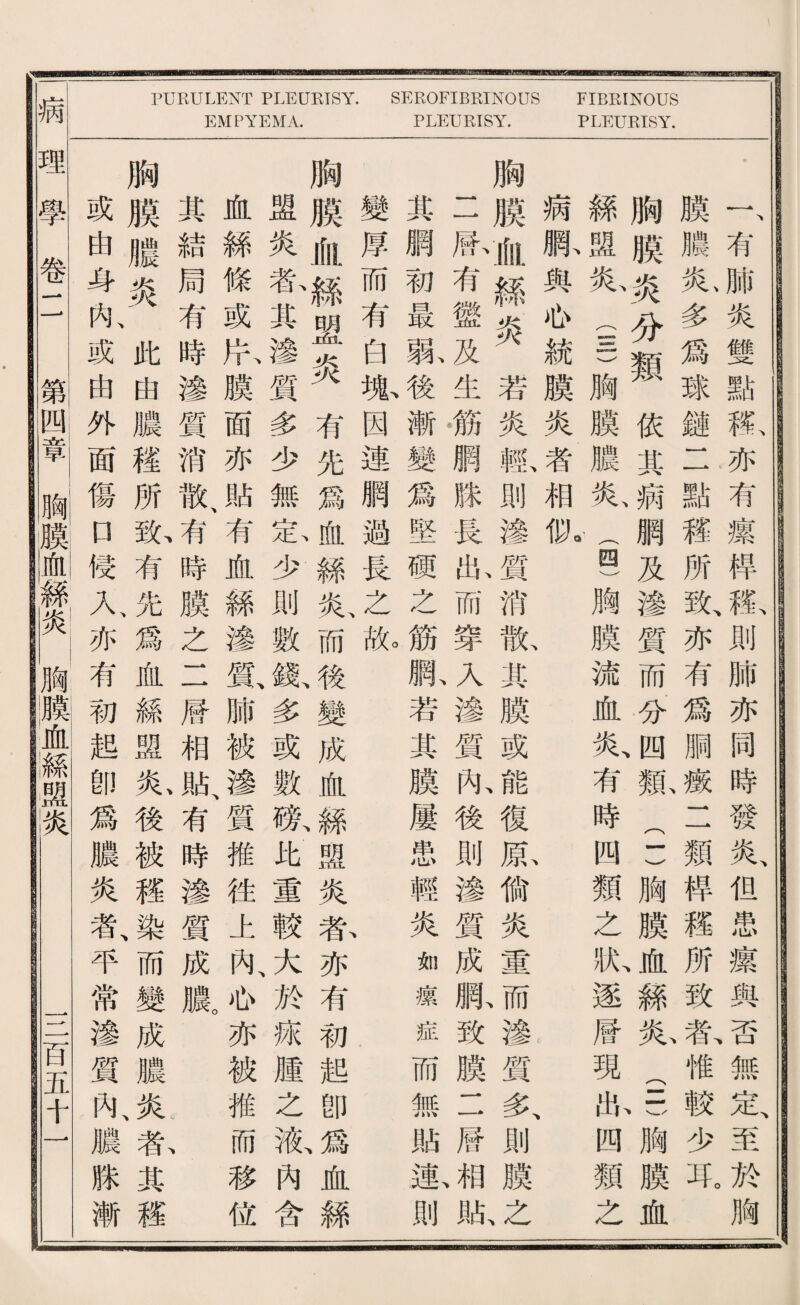 PURULENT PLEURISY.
EMPYEMA.
SEROFIBRINOUS
PLEURISY.
FIBRINOUS
PLEURISY.
一、有肺炎雙點𥠹、亦有瘰桿𥠹、則肺亦同時發炎、但患瘰與否無定、至於胸
膜膿炎、多爲球鏈二點𥠹所致、亦有爲胴癥二類桿𥠹所致者、惟較少耳。
胸膜炎分類 依其病膶及滲質而分四類、(一)胸膜血絲炎、(二)胸膜血
絲盟炎、(三)胸膜膿炎、(四)胸膜流血炎、有時四類之狀、逐層現出、四類之
病膶、與心統膜炎者相似。
胸膜血絲炎 若炎輕、則滲質消散、其膜或能復原、倘炎重而滲質多、則膜之
二層、有䘐及生筋膶脒長出、而穿入滲質內、後則滲質成膶、致膜二層相貼、
其膶初最弱、後漸變爲堅硬之筋膶、若其膜屢患輕炎如瘰症而無貼連、則
變厚而有白塊、因連膶過長之故。
胸膜血絲盟炎 有先爲血絲炎、而後變成血絲盟炎者、亦有初起卽爲血絲
盟炎者、其滲質多少無定、少則數錢、多或數磅、比重較大於痳腫之液、內含
血絲條或片、膜面亦貼有血絲滲質、肺被滲質推往上內、心亦被推而移位
其結局有時滲質消散、有時膜之二層相貼、有時滲質成膿。
胸膜膿炎 此由膿𥠹所致、有先爲血絲盟炎、後被𥠹染而變成膿炎者、其𥠹
或由身內、或由外面傷口侵入、亦有初起卽爲膿炎者、平常滲質內、膿脒漸
病理學 卷二 第四章 胸膜血絲炎 胸膜血絲盟炎 三百五十一